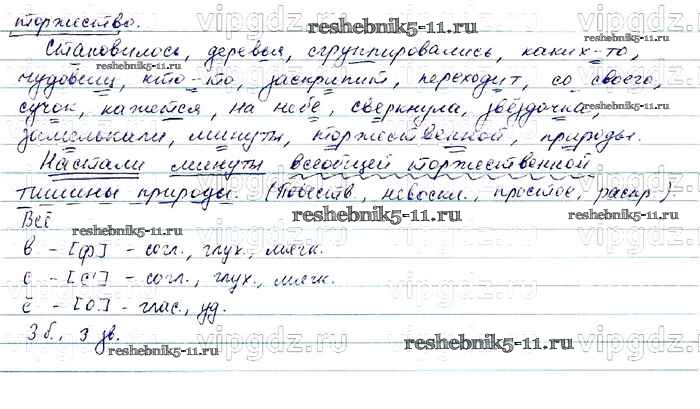 торжество.
Становилось, деревья, сгруппировались, каких-то,
чудовищ, кто-то, заскрипит, переходит, со своего,
сучок, кажется, на небе, сверкнула, звёздочка,
замелькали, минуты, торжественной, природы.
Настали минуты всеобщей торжественной
тишины природы. (Повеств., невоскл., простое, распр.).
Всё
в - [ф] - согл., глух., мягк.
с - [с'] - согл., глух., мягк.
ё - [о] - глас., уд.
3 б., 3 зв.
reshebnik5-11.ru
vipgdz.ru